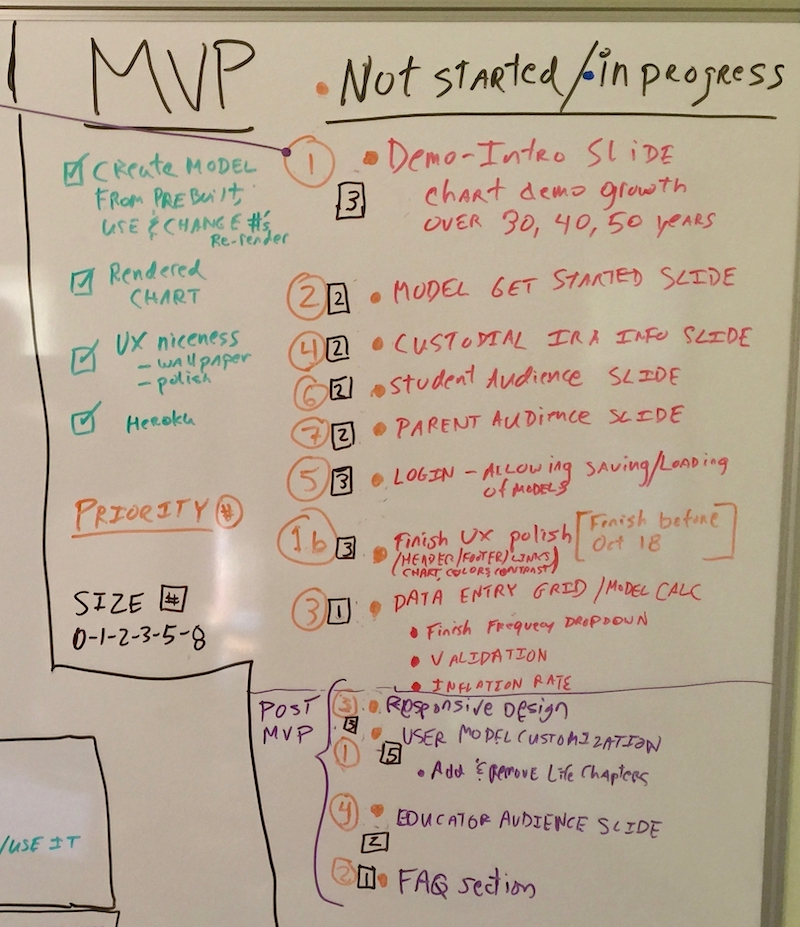 MVP
Not STARTED/in progress
Create MODEL
FROM PREBUILT,
USE & CHANGE #'s
Re-render
Rendered
CHART
UX niceness
- wallpaper
- polish
Heroku
PRIORITY #
SIZE #
0-1-2-3-5-8
1
3
Demo-Intro SLIDE
CHART demo growth
OVER 30, 40, 50 years
2 2 MODEL GET STARTED SLIDE
4 2 CUSTODIAL IRA INFO SLIDE
6 2 Student Audience SLIDE
7 2 PARENT AUDIENCE SLIDE
5 3 LOGIN - ALLOWING SAVING/LOADING
of MODELS
1b 3 Finish UX polish [Finish before
Oct 18]
(HEADER/FOOTER/LINKS
CHART, COLORS, CONTRAST)
3 1 DATA ENTRY GRID/MODEL CALC
• Finish Frequecy DROPDOWN
• VALIDATION
• INFLATION RATE
POST
MVP
3 3 Responsive Design
1 5 USER MODEL CUSTOMIZATION
• Add & Remove Life Chapters
4 2 EDUCATOR AUDIENCE SLIDE
2 1 FAQ section
/USE IT